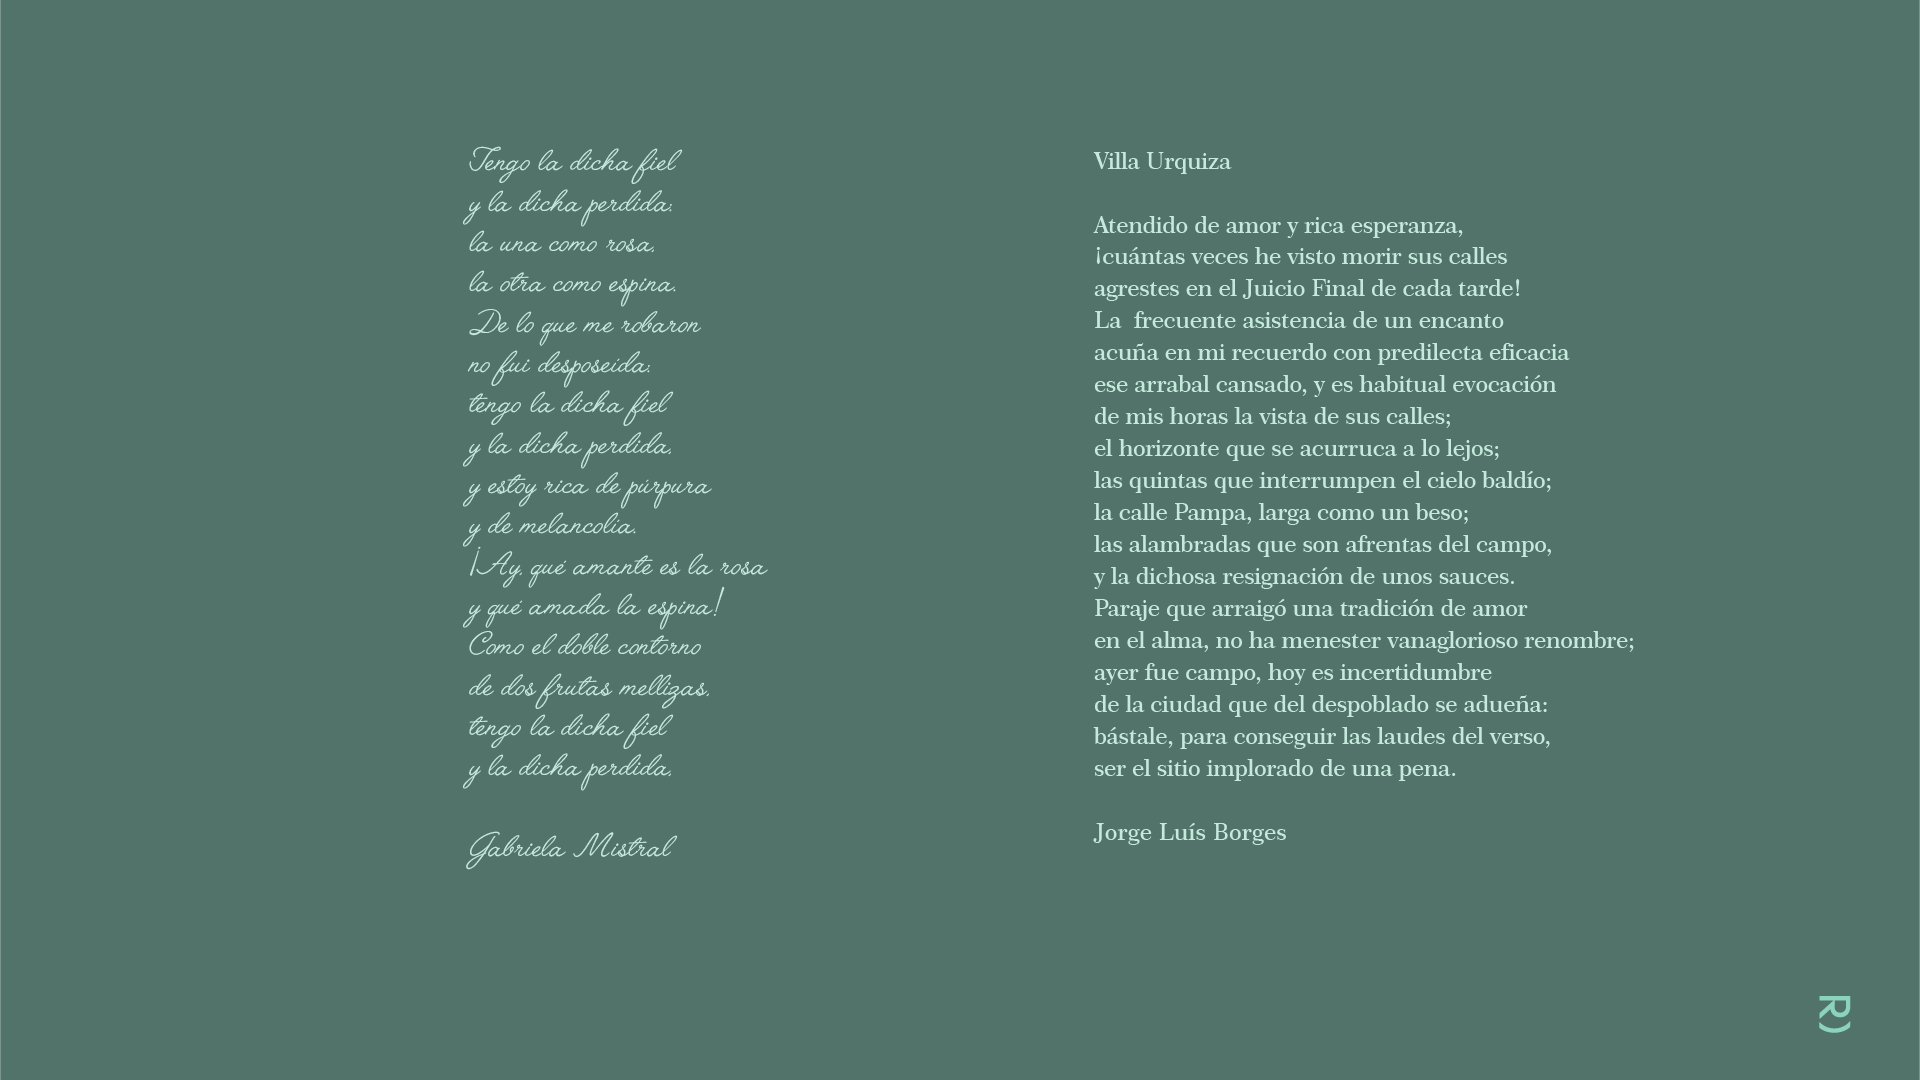 Tengo la dicha fiel
y la dicha perdida:
la una como rosa,
la otra como espina.
De lo que me robaron
no fui desposeída:
tengo la dicha fiel
y la dicha perdida,
y estoy rica de púrpura
y de melancolía.
¡Ay, qué amante es la rosa
y qué amada la espina!
Como el doble contorno
de dos frutas mellizas,
tengo la dicha fiel
y la dicha perdida.
Gabriela Mistral
Villa Urquiza
Atendido de amor y rica esperanza,
¡cuántas veces he visto morir sus calles
agrestes en el Juicio Final de cada tarde!
La  frecuente asistencia de un encanto
acuña en mi recuerdo con predilecta eficacia
ese arrabal cansado, y es habitual evocación
de mis horas la vista de sus calles;
el horizonte que se acurruca a lo lejos;
las quintas que interrumpen el cielo baldío;
la calle Pampa, larga como un beso;
las alambradas que son afrentas del campo,
y la dichosa resignación de unos sauces.
Paraje que arraigó una tradición de amor
en el alma, no ha menester vanaglorioso renombre;
ayer fue campo, hoy es incertidumbre
de la ciudad que del despoblado se adueña:
bástale, para conseguir las laudes del verso,
ser el sitio implorado de una pena.
Jorge Luís Borges
R)